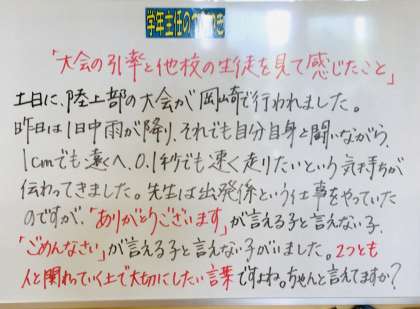 学年主任のつぶやき
「大会の引率と他校の生徒を見て感じたこと」
土日に、陸上部の大会が岡崎で行われました。
昨日は1日中雨が降り、それでも自分自身と闘いながら、
1cmでも遠くへ、0.1秒でも速く走りたいという気持ちが
伝わってきました。先生は出発係という仕事をやっていた
のですが、「ありがとうございます」が言える子と言えない子、
「ごめんなさい」が言える子と言えない子がいました。2つとも
人と関わっていく上で大切にしたい言葉ですよね。ちゃんと言えてますか？